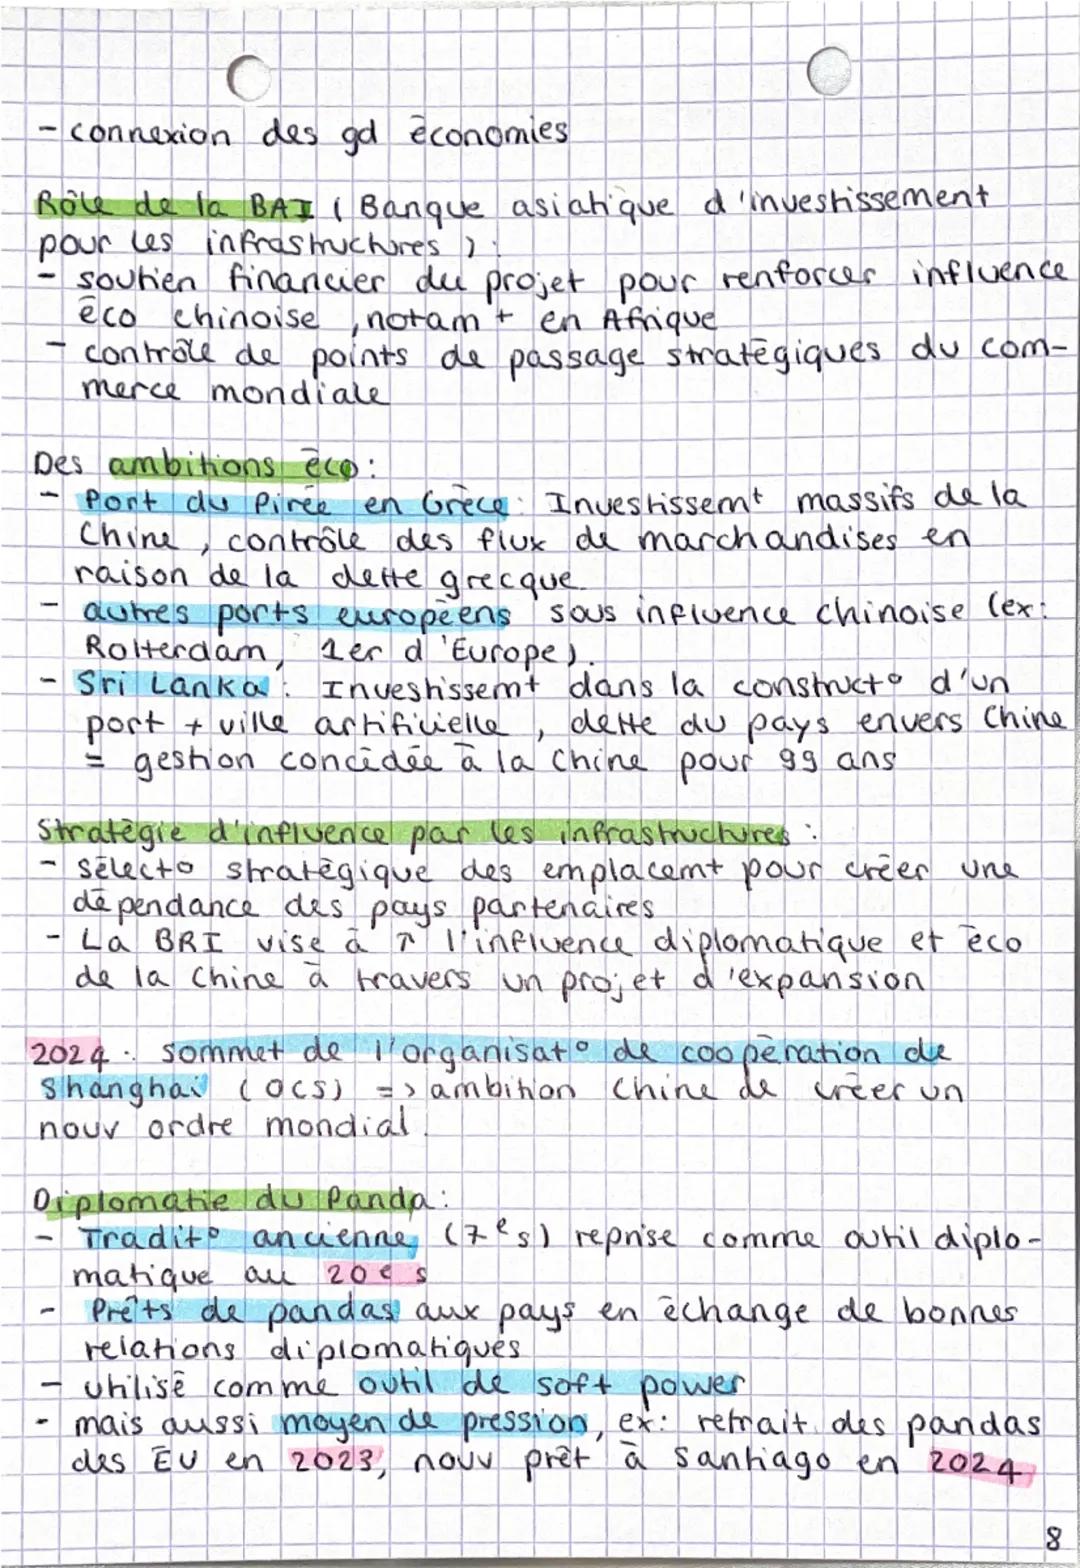 - connexion des gd économies
Rôle de la BAI ( Banque asiatique d'investissement
pour les infrastructures ) :
- soutien financier du projet pour renforcer influence
éco chinoise , notamt en Afrique
- contrôle de points de passage stratégiques du com-
merce mondiale
Des ambitions éco :
- Port du Pirée en Grèce : Investissemt massifs de la
Chine , contrôle des flux de marchandises en
raison de la dette grecque.
- autres ports européens sous influence chinoise (ex:
Rotterdam, 1er d'Europe).
- Sri Lanka : Investissemt dans la constructo d'un
port + ville artificielle , dette du pays envers Chine
= gestion concédée à la Chine pour 99 ans
Stratégie d'influence par les infrastructures :
- Sélecto stratégique des emplacemt pour créer une
dépendance des pays partenaires
- La BRI vise à ↗ l'influence diplomatique et éco
de la Chine à travers un projet d'expansion
2024 : sommet de l'organisato de coopération de
Shanghai (OCS) => ambition Chine de créer un
nouv ordre mondial.
Diplomatie du Panda :
- Tradito ancienne (7e s) reprise comme outil diplo-
matique au 20e s
- Prêts de pandas aux pays en échange de bonnes
relations diplomatiques
- utilisé comme outil de soft power
- mais aussi moyen de pression, ex: retrait des pandas
des EU en 2023, nouv prêt à Santiago en 2024
8